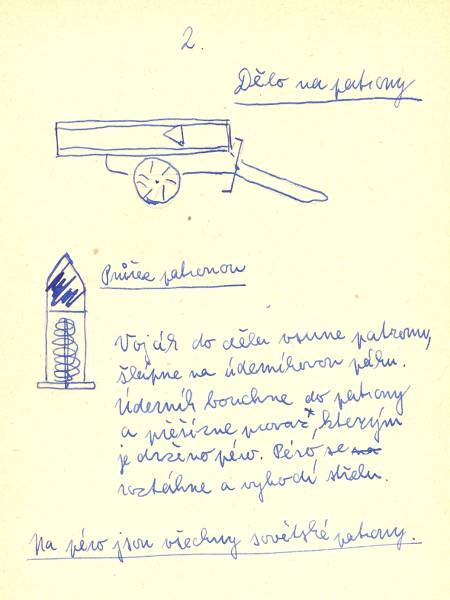 2.
Dělo na patrony
Průřez patronou
Voják do děla vsune patronu,
šlápne na úderníkovou páku.
Úderník bouchne do patrony
a přeřízne provaz*, kterým
je drženo péro. Péro se na
roztáhne a vyhodí střelu.
Na péro jsou všechny sovětské patrony.